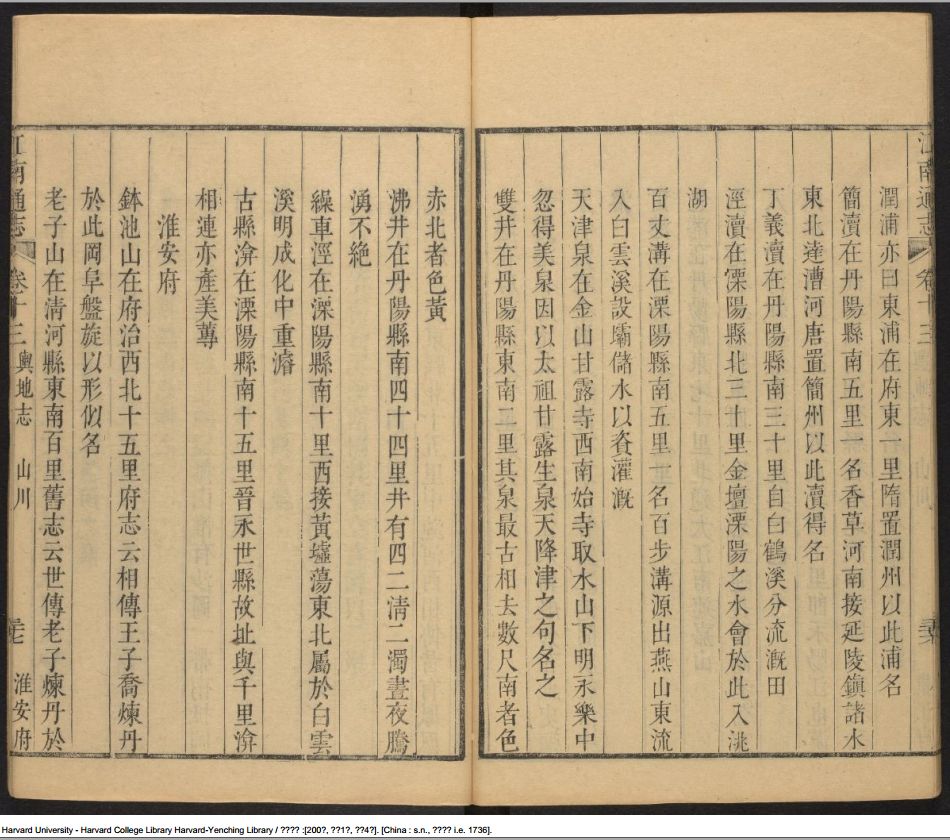 潤浦亦曰東浦在府東一里隋置潤州以此浦名
簡瀆在丹陽縣南五里一名香草河南接延陵鎮諸水
東北達漕河唐置簡州以此瀆得名
丁義瀆在丹陽縣南三十里自白鶴溪分流溉田
涇瀆在溧陽縣北三十里金壇溧陽之水會於此入洮
湖
百丈溝在溧陽縣南五里一名百步溝源出燕山東流
入白雲溪設壩儲水以資灌溉
天津泉在金山甘露寺西南始寺取水山下明永樂中
忽得美泉因以太祖甘露生泉天降津之句名之
雙井在丹陽縣東南二里其泉最古相去數尺南者色
赤北者色黃
沸井在丹陽縣南四十四里井有四二清二濁晝夜騰
湧不絶
繰車涇在溧陽縣南十里西接黃墟蕩東北屬於白雲
溪明成化中重濬
古縣渰在溧陽縣南十五里晉永世縣故址與千里渰
相連亦產美蓴
淮安府
鉢池山在府治西北十五里府志云相傳王子喬煉丹
於此岡阜盤旋以形似名
老子山在清河縣東南百里舊志云世傳老子煉丹於
江南通志 卷十三 輿地志 山川 淮安府
Harvard University - Harvard College Library Harvard-Yenching Library / ???? :[200?, ??1?, ??4?]. [China : s.n., ???? i.e. 1736].